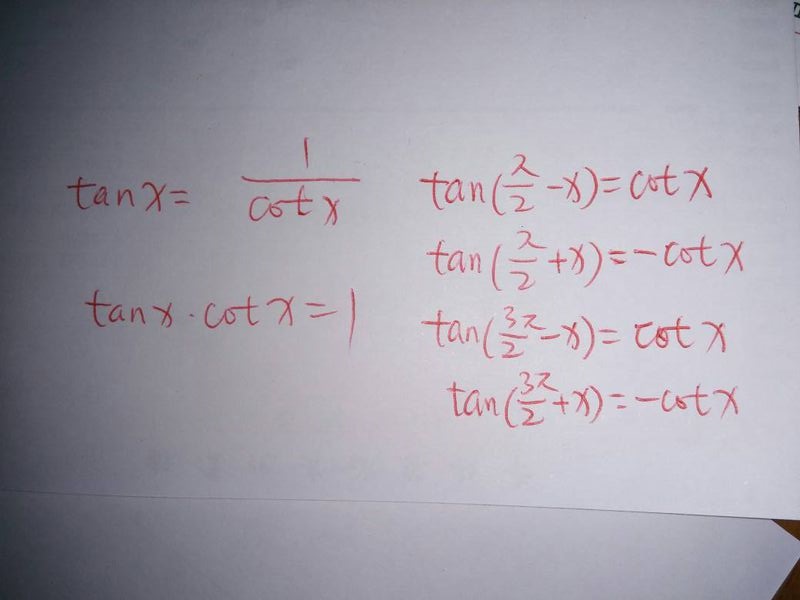 tan x = 1/cot x
tan x · cot x = 1
tan(π/2 - x) = cot x
tan(π/2 + x) = - cot x
tan(3π/2 - x) = cot x
tan(3π/2 + x) = - cot x